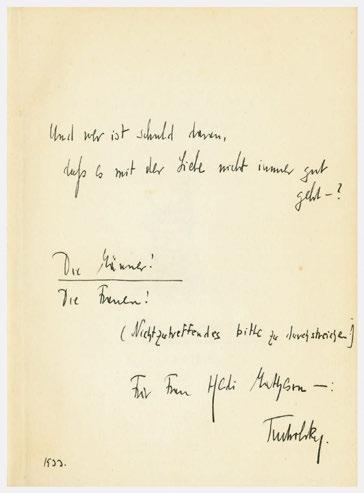 Und wer ist schuld daran,
daß es mit der Liebe nicht immer gut
geht –?
Die Männer!
Die Frauen!
(Nichtzutreffendes bitte zu durchstreichen)
Für Frau Hedi –:
Tucholsky.
1933.